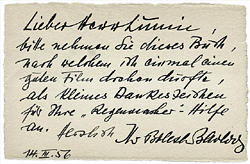 Lieber Herr Lunin,
bitte nehmen Sie dieses Buch,
nach welchem ich einmal einen
guten Film drehen durfte,
als kleines Dankeszeichen
für Ihre „Regenmacher"-Hilfe
an. Herzlich Ihr Boleslaw Barlog
14. IV. 56